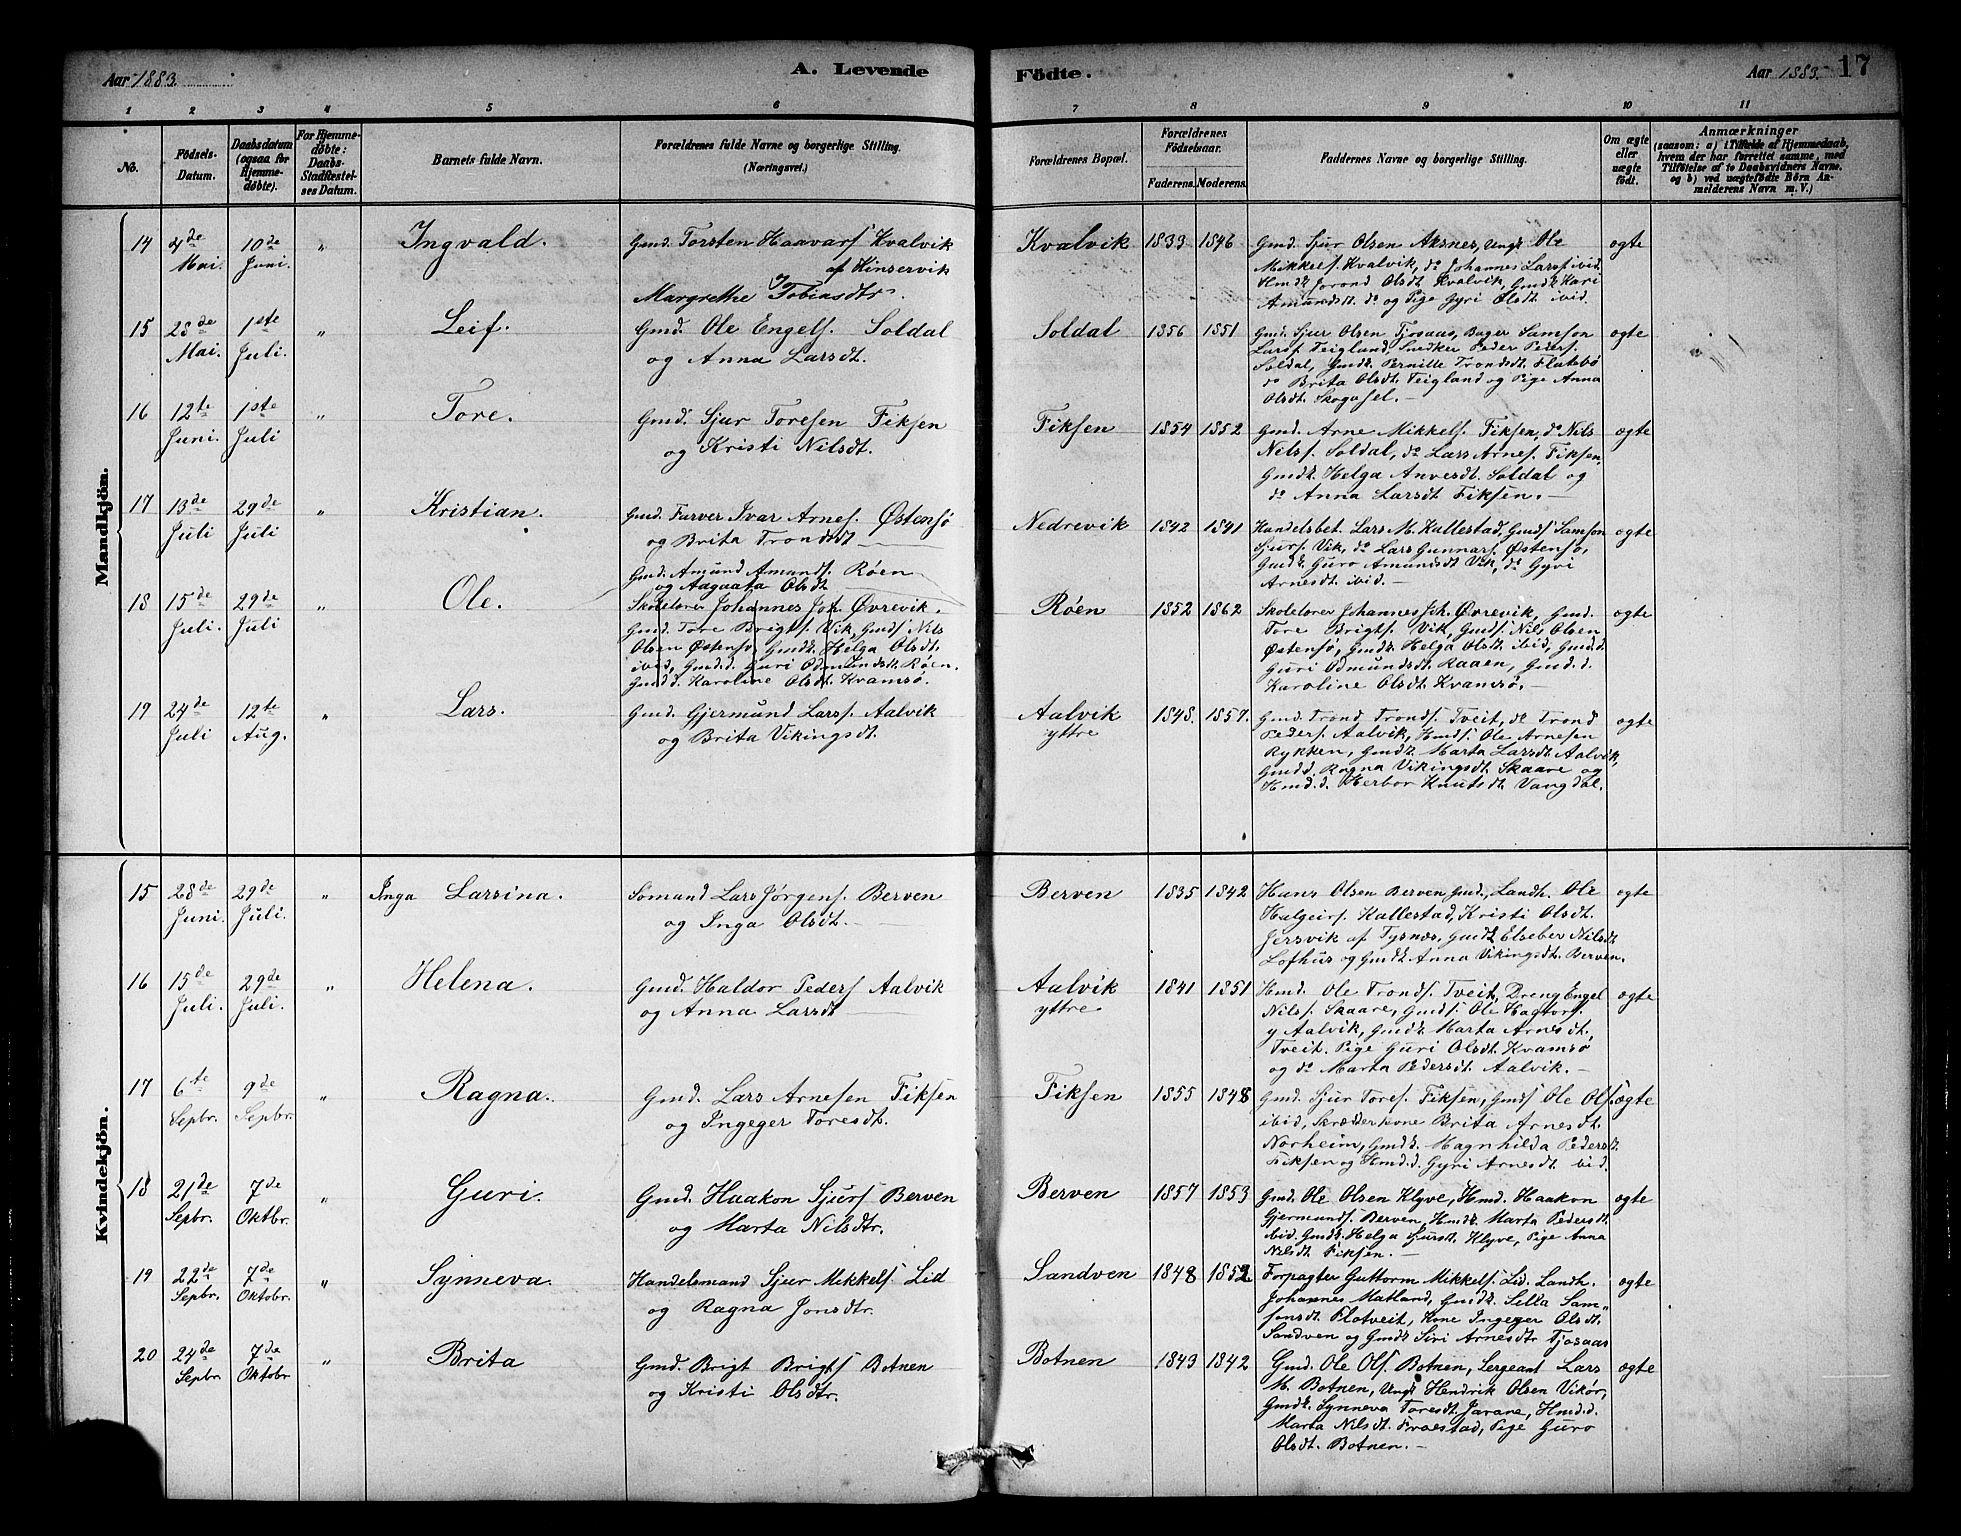 Aar 1883.
A. Levende
Födte.
Aar 1883.
17
1 2 3 4 5 6 7 8 9 10 11
No.
Födsels-
Datum.
Daabsdatum
(ogsaa for
Hjemme-
döbte).
For Hjemme-
döbte:
Daabs-
Stadfæstel-
ses Datum.
Barnets fulde Navn.
Forældrenes fulde Navne og borgerlige Stilling.
(Næringsvei.)
Forældrenes Bopæl.
Forældrenes
Födselsaar.
Faderens. Moderens.
Faddernes Navne og borgerlige Stilling.
Om ægte
eller
uægte
födt.
Anmærkninger
(saasom: a) i Tilfælde af Hjemmedaab,
hvem der har forrettet samme, med
Tilföielse af to Daabsvidners Navne,
og b) ved uægtefödte Börn An-
melderens Navn m. V.)
Mandkjön.
14
4de
Mai.
10de
Juni.
"
Ingvald.
Gmd. Torsten Haavars. Kvalvik
af Kinservik
Margrethe Tobiasdtr.
Kvalvik
1833 1846
Gmd. Sjur Olsen Aksnes, Ungk. Ole
Mikkels. Kvalvik, do Johannes Larss. ibid.
Hmdk. Jorond Olsdt. Kvalvik, Gmdk. Kari
Amundsdt. do og Pige Gyri Olsdt. ibid.
ogte
15
28de
Mai.
1ste
Juli.
"
Leif.
Gmd. Ole Engels. Soldal
og Anna Larsdt.
Soldal
1856 1851
Gmd. Sjur Olsen Tjosaas, Bager Samson
Larss. Teigland, Snedker Peder Peders.
Soldal, Gmdk. Pernille Trondsdt. Flatebø
do Brita Olsdt. Teigland og Pige Anna
Olsdt. Skogasel.
ogte
16
12te
Juni.
1ste
Juli
"
Tore.
Gmd. Sjur Toresen Fiksen
og Kristi Nilsdt.
Fiksen
1854 1852
Gmd. Arne Mikkels. Fiksen, do Nils
Nilss. Soldal, do Lars Arnes. Fiksen,
Gmdk. Helga Anvesdt. Soldal og
do Anna Larsdt Fiksen.
ogte
17
13de
Juli
29de
Juli
"
Kristian.
Gmd. Farver Ivar Arnes. Østensø
og Brita Trondsdt.
Nedrevik
1842 1841
Handelsbet. Lars M. Kallestad, Gmds. Samson
Sjurs. Vik, do Lars Gunnars. Østensø,
Gmdk. Guro Amundsdt Vik, do Gyri
Arnesdt. ibid.
ogte
18
15de
Juli.
29de
Juli
"
Ole.
Gmd. Amund Amunds. Røen
og Aagaata Olsdt
Skolelærer Johannes Joh. Øvrevik.
Gmd. Tore Brigts. Vik, Gmds. Nils
Olsen Østensø, Gmdk. Helga Olsdt.
ibid, Gmd.d. Guri Odmundsdt. Røen.
Gmd.d. Karoline Olsdt Kvamsø.
Røen
1852 1862
Skolelærer Johannes Joh. Øvrevik, Gmd.
Tore Brigts. Vik, Gmds. Nils Olsen
Østensø, Gmdk. Helga Olsdt ibid, Gmd.d.
Guri Odmundsdt. Raaen, Gmd.d.
Karoline Olsdt Kvamsø.
ogte
19
24de
Juli
12te
Aug.
"
Lars.
Gmd. Gjermund Larss. Aalvik
og Brita Vikingsdt.
Aalvik
yttre
1848. 1857.
Gmd. Trond Tronds. Tveit, do Trond
Peders. Aalvik, Hmds. Ole Arnesen
Rykken, Gmdk. Marta Larsdt Aalvik,
Gmdd. Ragna Vikingsdt. Skaare og
Hmd.d. Herbor Knutsdt Vangdal.
ogte
Kvindekjön.
15
28de
Juni.
29de
Juli.
"
Inga Larsina.
Sömand Lars Jørgens. Berven
og Inga Olsdt.
Berven
1835 1842
Hans Olsen Berven Gmd., Landh. Ole
Halgeirs. Kallestad, Kristi Olsdt.
Jersvik af Tysnæs, Gmdk Elseber Nilsdt.
Lofhus og Gmdk Anna Vikingsdt. Berven.
ogte
16
15de
Juli.
29de
Juli.
"
Helena.
Gmd. Haldor Peders Aalvik
og Anna Larsdt
Aalvik
yttre
1841 1851
Hmd. Ole Tronds. Tveit, Dreng Engel
Nilss. Skaare, Gmds. Ole Hactors.
y Aalvik, Gmdk. Marta Arnesdt.
Tveit. Pige Guri Olsdt. Kvamsø
og do Marta Pedersdt Aalvik.
ogte
17
6te
Septbr.
9de
Septbr.
"
Ragna.
Gmd. Lars Arnesen Fiksen
og Ingeger Toresdt.
Fiksen
1855 1848
Gmd. Sjur Tores. Fiksen, Gmds Ole Ols.
ibid, Skrædderkone Brita Arnesdt.
Norheim, Gmdk. Magnhilda Pedersdt
Fiksen og Hmd.d. Gyri Arnesdt. ibid.
ægte
18
21de
Sepbr.
7de
Oktbr.
"
Guri.
Gmd. Haakon Sjurs Berven
og Marta Nilsdtr.
Berven
1857 1853
Gmd. Ole Olsen Klyve, Hmd. Haakon
Gjermunds. Berven, Hmdk. Marta Pedersdt.
ibid. Gmdk. Helga Sjursdt. Klyve, Pige Anna
Nilsdt Fiksen.
ogte
19
22de
Sepbr.
7de
Oktobr.
"
Synneva.
Handelsmand Sjur Mikkels Lid
og Ragna Jonsdtr.
Sandven
1848 1852
Forpagter Guttorm Mikkels. Lid. Landh.
Johannes Matland, Gmdk. Silla Sam-
sonsdt. Flotveit, Kone Ingeger Olsdt.
Sandven og Gmdk Siri Arnesdtr Tjosaas
ogte
20
24de
Sepbr.
7de
Oktobr
"
Brita
Gmd. Brigt Brigts Botnen
og Kristi Olsdtr.
Botnen
1843 1842
Gmd. Ole Ols. Botnen, Sergeant Lars
M. Botnen, Ungk Hendrik Olsen Vikør,
Gmdk. Synneva Toresdt. Jarane, Hmd.d.
Marta Nilsdt. Fraestad, Pige Guro
Olsdt. Botnen.
ogte